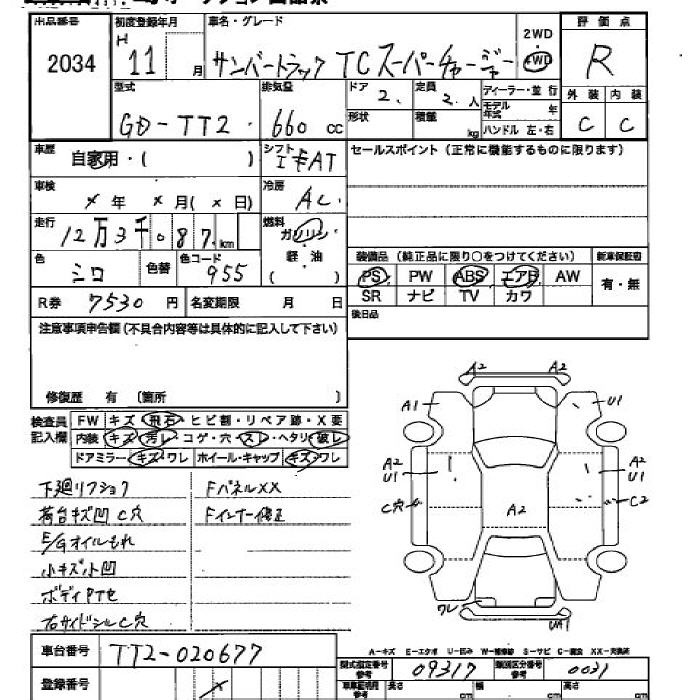 出品番号 初度登録年月 車名・グレード 2WD 評価点
2034 H 11 月 サンバートラック TC スーパーチャージャー 4WD R
型式 排気量 ドア 2. 定員 2. 人 ディーラー・並行 外装 内装
GD-TT2. 660 cc 形状 積載 kg モデル年式 年 C C
ハンドル 左・右
車歴 自家用・( ) シフト AT セールスポイント(正常に機能するものに限ります)
車検 × 年 × 月 ( × 日) 冷房 AC.
走行 12万3千087 km 燃料 ガソリン
色 シロ 色替 色コード 955 軽油 ( ) 装備品(純正品に限り○をつけてください) 新車保証書
PS PW ABS エアB AW 有・無
R券 7530 円 名変期限 月 日 SR ナビ TV カワ
注意事項申告欄(不具合内容等は具体的に記入して下さい) 後日品
修復歴 有 (箇所 )
検査員 FW キズ・飛石・ヒビ割・リペア跡・X要
記入欄 内装 キズ・汚レ・コゲ・穴・スレ・ヘタリ・破レ
ドアミラー・キズ・ワレ ホイール・キャップ キズ・ワレ
A2 A2
A1 U1
A2 U1 A2 U1
C穴 A2 C2
ワレ UA1
下廻リフショク FパネルXX
荷台キズ凹 C穴 Fインナー修正
E/Gオイルもれ
小キズ小凹
ボディPTセ
右サイドシルC穴
車台番号 TT2-020677
A-キズ E-エクボ U-凹み W-補修跡 S-サビ C-腐食 XX-交換済
型式指定番号 09317 類別区分番号 0021
登録番号 × 長さ cm 幅 cm 高さ cm